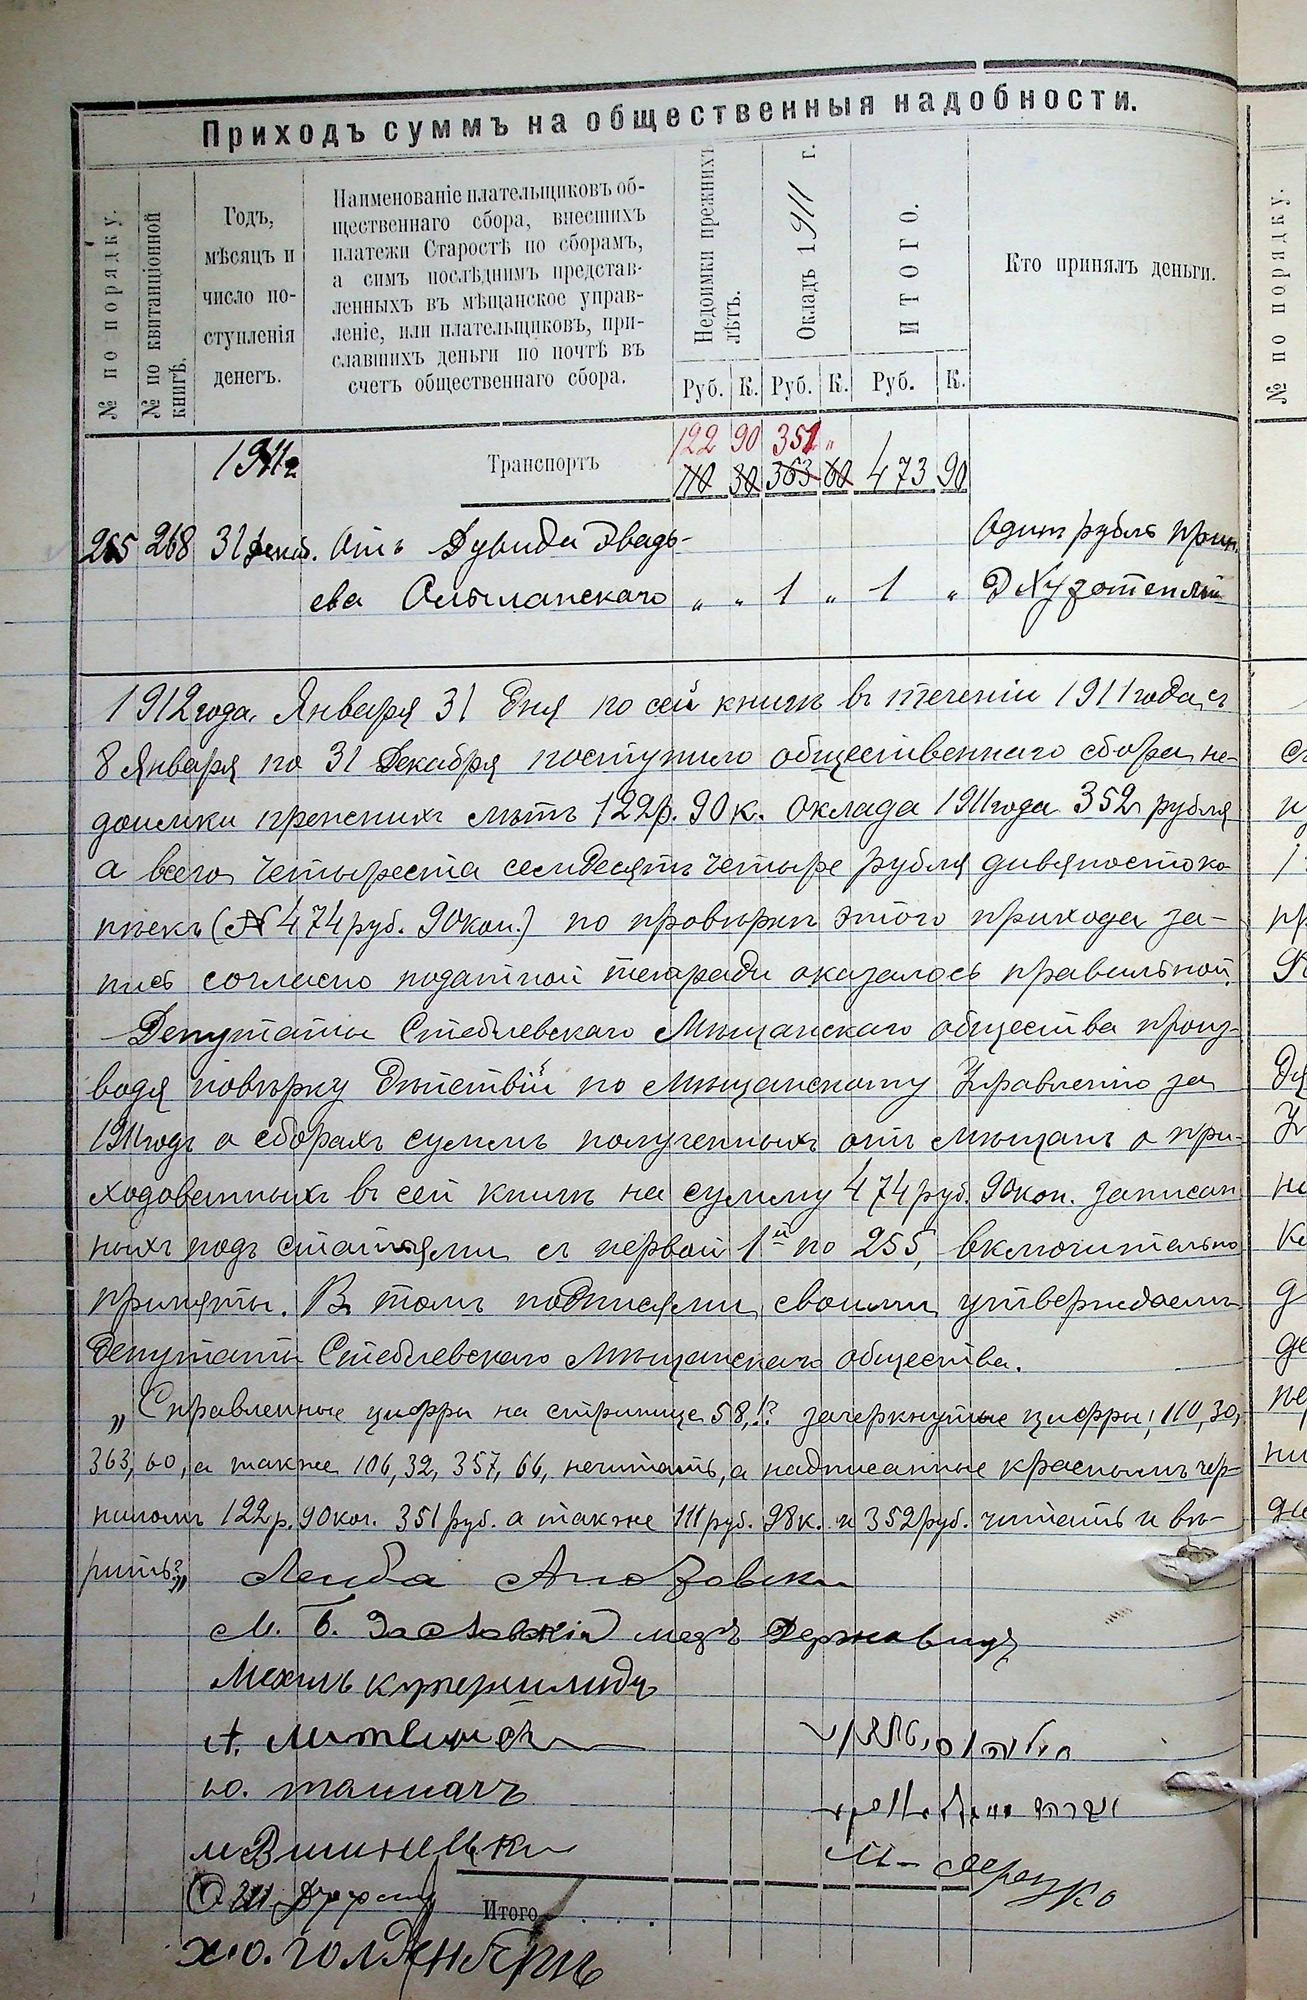 Приходъ суммъ на общественныя надобности.
№ по порядку.
№ по квитанціонной книгѣ.
Годъ,
мѣсяцъ и
число по-
ступленія
денегъ.
Наименованіе плательщиковъ об-
щественнаго сбора, внесшихъ
платежи Старостѣ по сборамъ,
а симъ послѣднимъ представ-
ленныхъ въ мѣщанское управ-
леніе, или плательщиковъ, при-
славшихъ деньги по почтѣ въ
счетъ общественнаго сбора.
Недоимки прежнихъ лѣтъ.
Окладъ 1911 г.
ИТОГО.
Кто принялъ деньги.
Руб. К. Руб. К. Руб. К.
122 90 351 "
1911 г. Транспортъ 110 30 363 60 473 90
255 268 31 Декаб. Отъ Дувида Овадь- Один рубль прин.
ева Ольшанскаго " " 1 " 1 "
1912 года. Января 31 Дня по сей книгѣ въ теченіи 1911 года съ
8 Января по 31 Декабря поступило общественнаго сбора, не-
доимки прежнихъ лѣтъ 122 р. 90 к. оклада 1911 года 352 рубля
а всего четыреста семдесятъ четыре рубля дивяносто ко
пѣекъ (474 руб. 90 коп.) по провѣркѣ этого прихода за-
пись согласно податной тетради оказалось правильной.
Депутаты Стеблевскаго Мѣщанскаго общества произ-
водя повѣрку дѣйствій по Мѣщанскому Управленію за
1911 годъ о сборахъ суммъ полученныхъ отъ мѣщанъ о при-
ходованныхъ въ сей книгѣ на сумму 474 руб. 90 коп. записан
ныхъ подъ статьями съ первой 1й по 255, включительно
приняты. Въ томъ подписями своими утверждаемъ
Депутаты Стеблевскаго Мѣщанскаго общества.
„Справленные цифры на странице 58,!? зачеркнутые цифры; 110, 30,
363, 60, а также 106, 32, 357, 66, нечитать, а надписанные краснымъ чер-
ниломъ 122 р. 90 коп. 351 руб. а также 111 руб. 98 к. и 352 руб. читать и вѣ-
рить?„ Лейба
М. Б. Заславскій
А. Литвинск
Итого